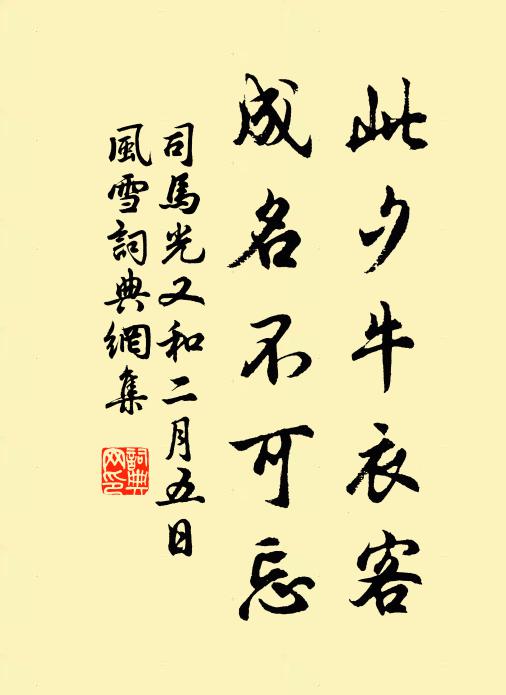 此夕牛衣客
成名不可忘
司馬光又和二月五日
風雪詞典網集
詞典网印